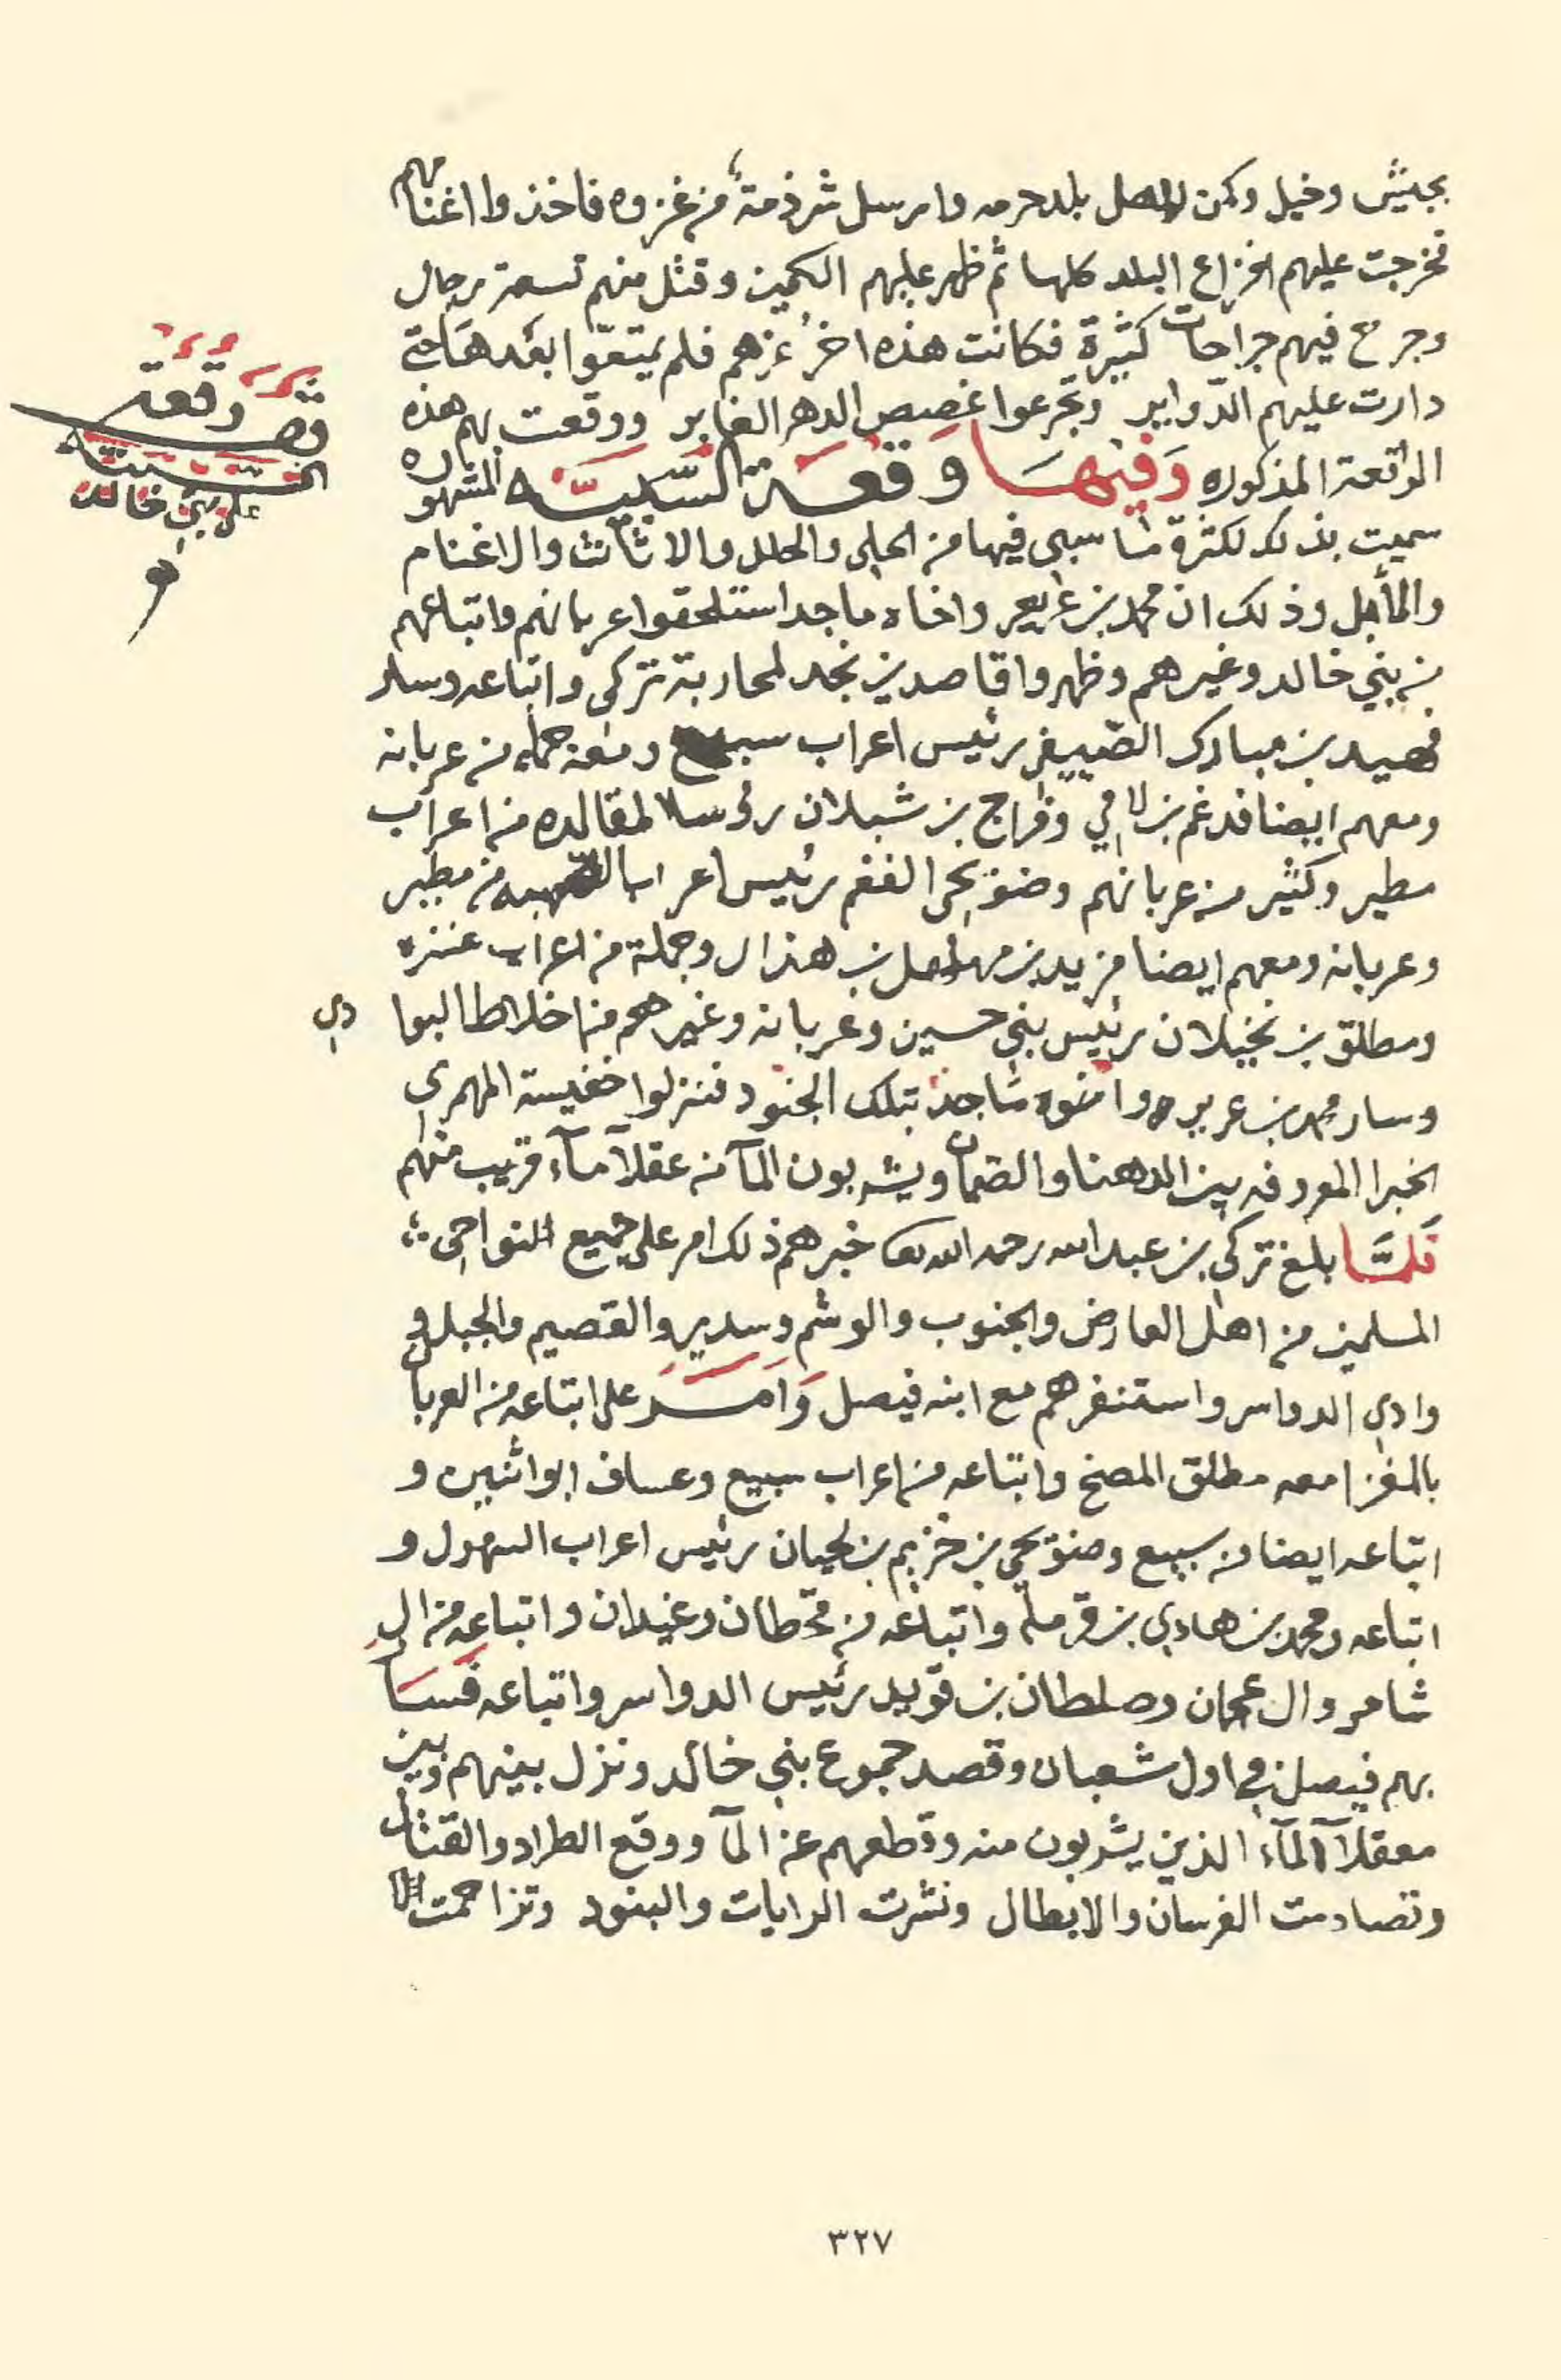 بجيش وخيل وكمن لاهل بلد حرمه وارسل شرذمة من غزوه فاخذوا اغنامهم
فخرجت عليهم افزاع البلد كلها ثم ظهر عليهم الكمين وقتل منهم تسعة رجال
وجرح فيهم جراحات كثيرة فكانت هذه اخر عزهم فلم يمتعوا بعدها حتى
دارت عليهم الدواير وتجرعوا غصص الدهر الغابر ووقعت بهم هذه
الواقعة المذكوره وَفيهَا وقعَة السّبيّه المشهوره
سميت بذلك لكثرة ما سبي فيها من الحلي والحلل والاثاث والاغنام
والمأبل وذلك ان محمد بن عريعر واخاه ماجد استلحقوا عربانهم واتباعهم
من بني خالد وغيرهم وظهروا قاصدين نجد لمحاربة تركي واتباعه وسار
فهيد بن مبارك الصييفي رئيس اعراب سبيع ومعه حمله من عربانه
ومعهم ايضا فدغم بن لامي وفراج بن شبلان رؤسا لمقالده من اعراب
مطير وكثير من عربانهم وضويحى الفغم رئيس اعراب الصهبه من مطير
وعربانه ومعهم ايضا مزيد بن مهلهل بن هذال وجملة من اعراب عنزه
ومطلق بن نخيلان رئيس بني حسين وعربانه وغيرهم من اخلاط البوادي
وسار محمد بن عريعر واخوه ماجد بتلك الجنود فنزلوا خفيسة المهمري
الخبرا المعروفه بين الدهنا والصمان ويشربون المآ من عقلآ مآء قريب منهم
فَلمَّا بلغ تركي بن عبدالله رحمه الله تعا خبرهم ذلك امر على جميع النواحي
المسلمين من اهل العارض والجنوب والوشم وسدير والقصيم والجبل و
وادي الدواسر واستنفرهم مع ابنه فيصل وَامَر على اتباعه من العربان
بالمغزا معه مطلق المصخ واتباعه من اعراب سبيع وعساف ابو اثنين و
اتباعه ايضا من سبيع وضويحي بن خزيم بن لحيان رئيس اعراب السهول و
اتباعه ومحمد بن هادي بن قرمله واتباعه من قحطان وغيدان واتباعه من ال
شامر وال عجمان وصلطان بن قويد رئيس الدواسر واتباعه فسَار
بهم فيصل في اول شعبان وقصد جموع بني خالد ونزل بينهم وبين
معقلآ المآء الذين يشربون منه وقطعهم عن المآ ووقع الطراد والقتال
وتصادمت الفرسان والابطال ونشرت الرايات والبنود وتزاحمت
وقعة
على بني خالد
٣٢٧